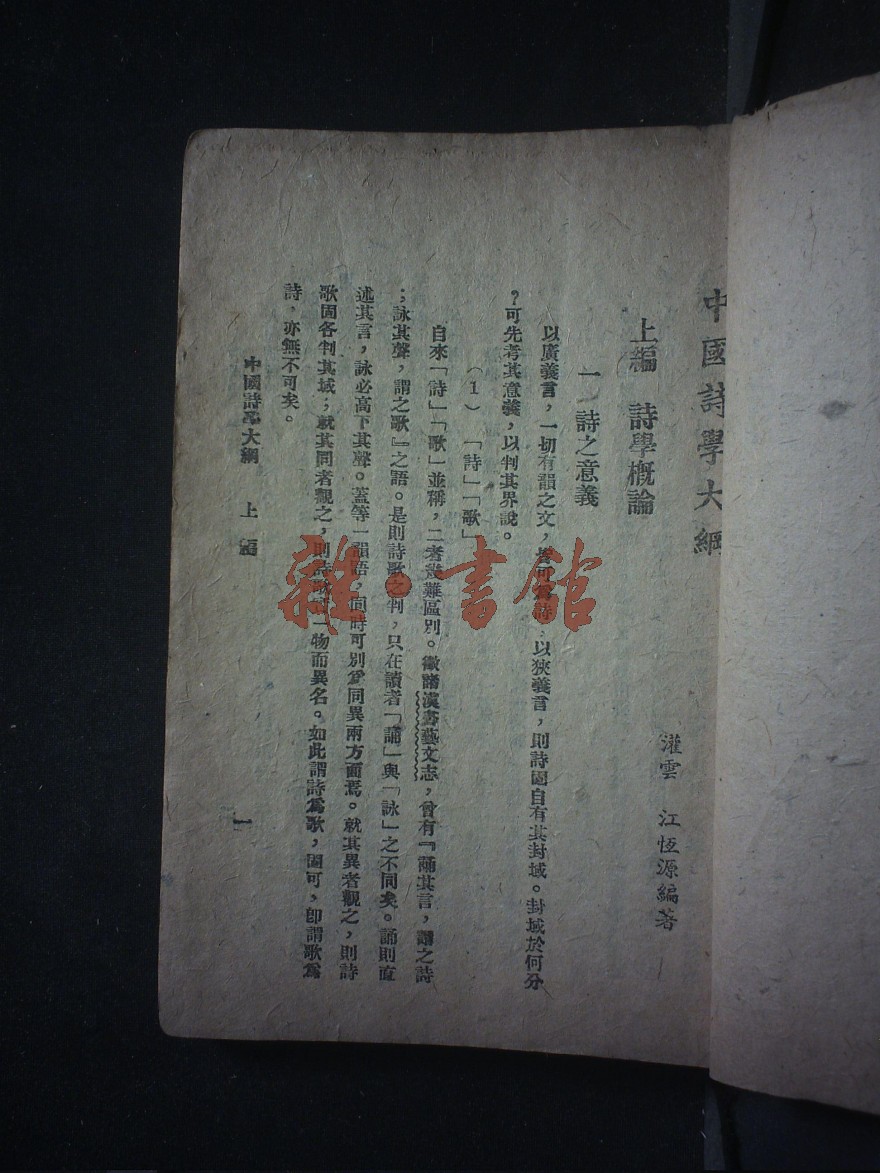 中國詩學大綱
灌雲 江恆源編著
上編 詩學概論
一 詩之意義
以廣義言，一切有韻之文，皆可爲詩，以狹義言，則詩固自有其封域。封域於何分
？可先考其意義，以判其界說。
（1）「詩」「歌」
自來「詩」「歌」並稱，二者幾難區別。徵諸漢書藝文志，曾有『誦其言，謂之詩
；詠其聲，謂之歌』之語。是則詩歌之判，只在讀者「誦」與「詠」之不同矣。誦則直
述其言，詠必高下其聲。蓋等一韻語，同時可別爲同異兩方面焉。就其異者觀之，則詩
歌固各判其域；就其同者觀之，則詩歌一物而異名。如此謂詩爲歌，固可，卽謂歌爲
詩，亦無不可矣。
中國詩學大綱 上編 一
雜·書館